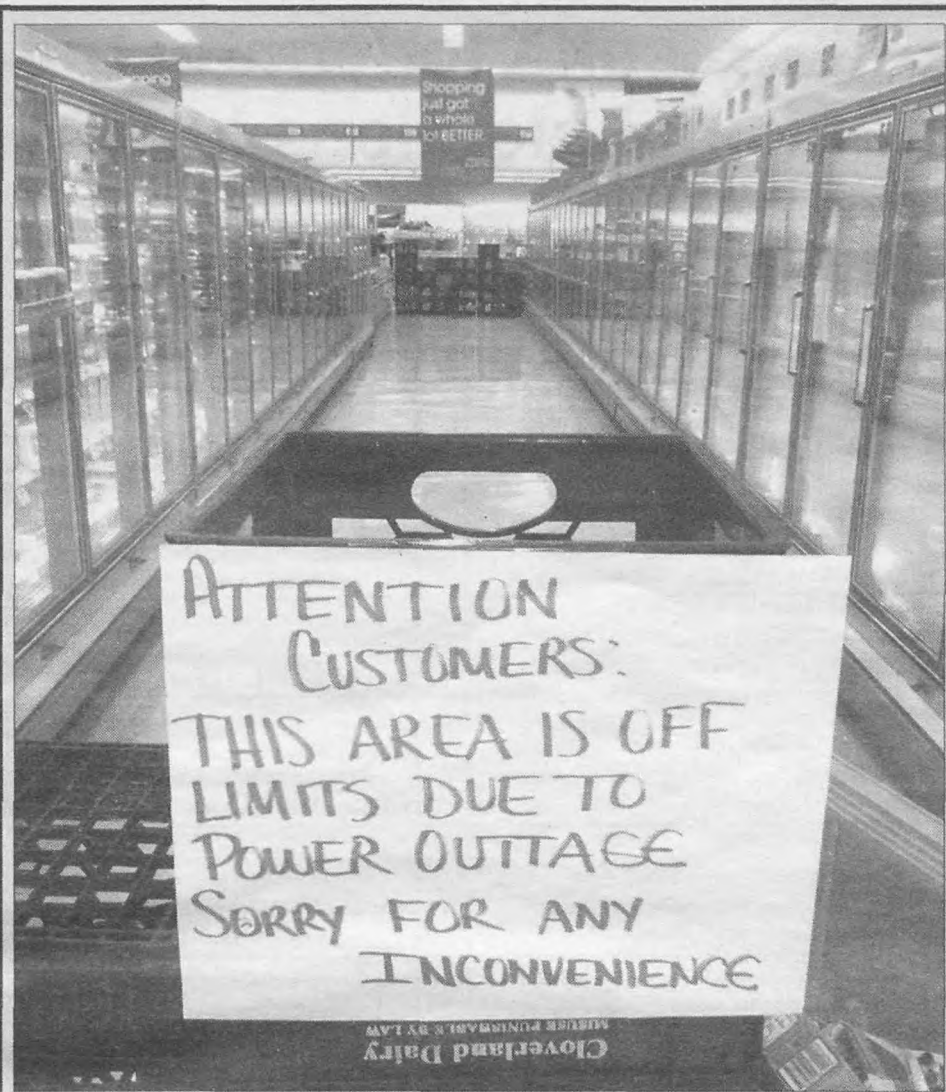 Shopping
just got
a whole
lot BETTER.
ATTENTION
CUSTOMERS:
THIS AREA IS OFF
LIMITS DUE TO
POWER OUTTAGE
SORRY FOR ANY
INCONVENIENCE
Cloverland Dairy
MISUSE PUNISHABLE BY LAW